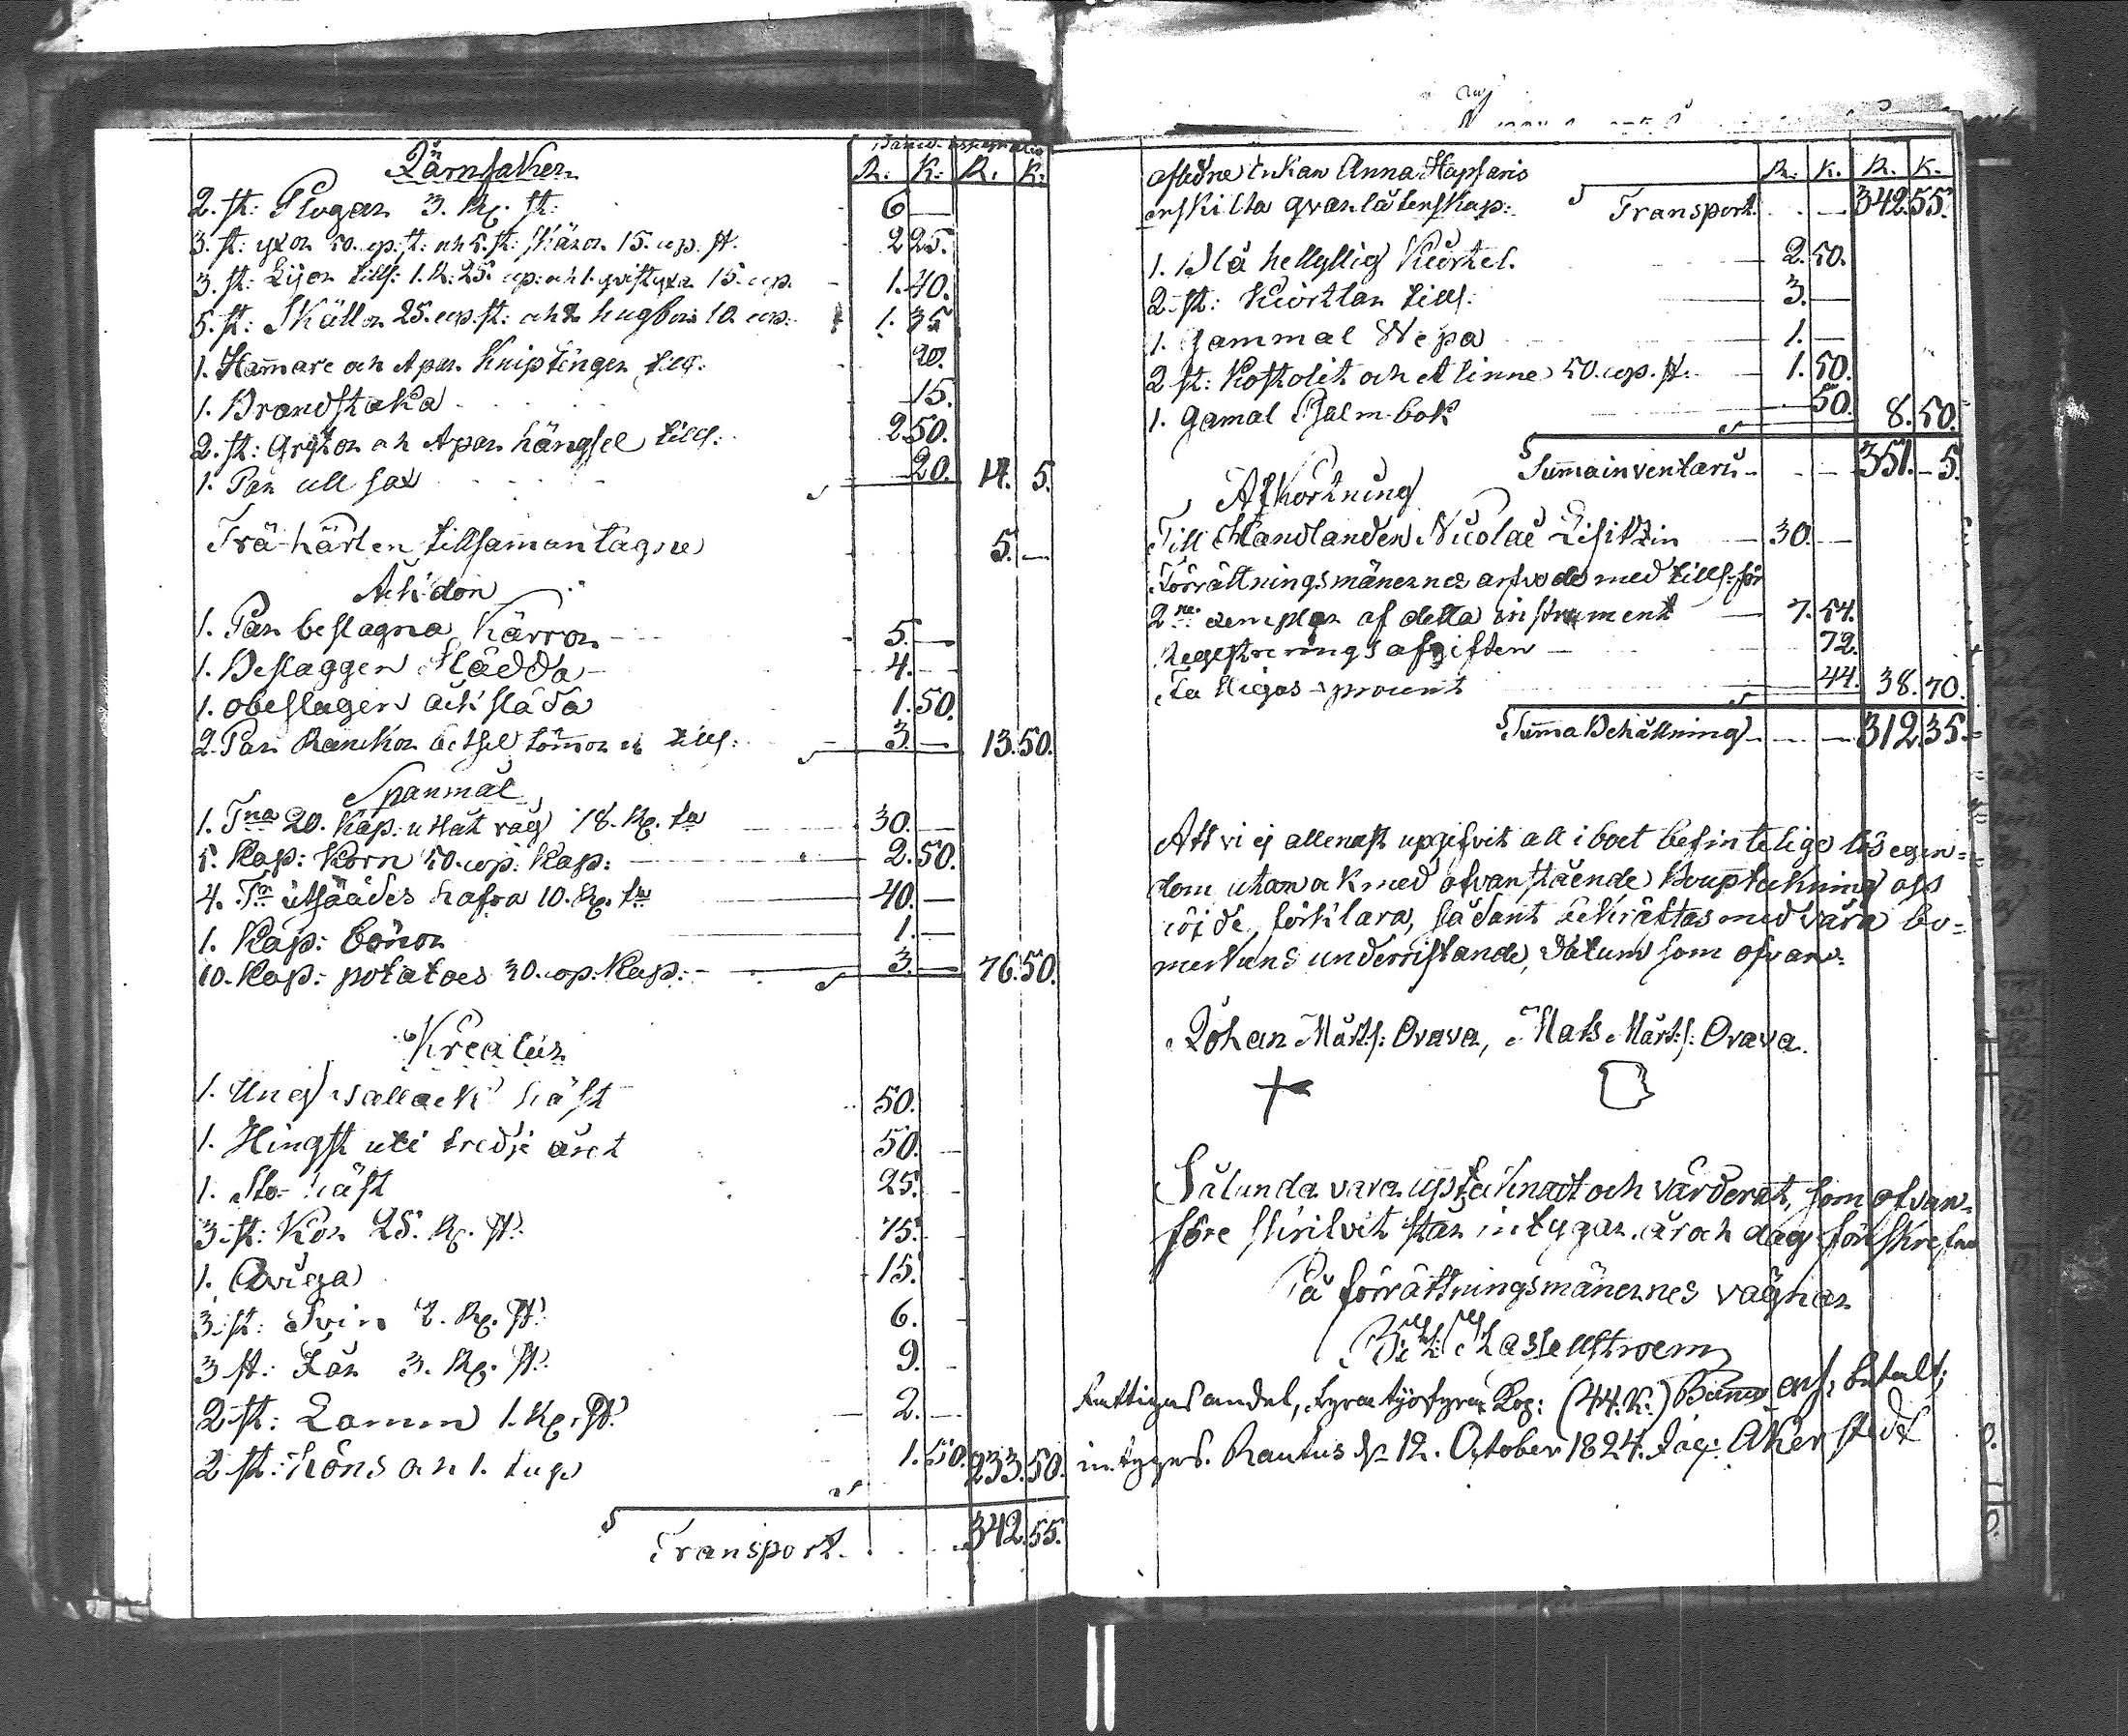 Järnsaker
Banco assignatio
R. K. R. K.
2. st: Plogar 3. R. st: 6 —
3. st: yxor 50. cop. st: och 5. st: skäror 15. cop. st. 2 25.
3. st: Lijor tills: 1. R: 25. cop: och 1. qvistyxa 15. cop. 1. 40.
5. st: Skällor 25. cop. st: och 2 hugborr 10. cop: 1. 35
1. Hammare och 1 par Kniptänger tills: 20.
1. Brandstaka 15.
2. st: Grytor och 1 par hängsel tills: 2 50.
1. Par ull sax 20. 14. 5.
Trä-kärlen tillsamantagne 5. —
Åkdon
1. Par beslagna Kärror 5. —
1. Beslaggen Slädda 4. —
1. obeslagen åkslåda 1. 50.
2. Par Ranckor betsel tömmor tills: 3. — 13. 50.
Spanmål
1. Tna 20. Kap: utsåt råg 18. R. ta 30. —
5. Kap: Korn 50. cop. Kap: 2. 50.
4. Tr utsäades hafra 10. R. ta 40. —
1. Kap: bönor 1. —
10. Kap: potatoes 30. cop. Kap: 3. — 76. 50.
Kreatur
1. Ung vallack häst 50.
1. Hingst uti tredje året 50. —
1. Sto-häst 25. —
3. st: Kor 25. R. st: 75. —
1. Qviga 15. —
3. st: Svin 2. R. st: 6. —
3 st: Får 3. R. st: 9. —
2 st: Lamm 1. R. st: 2. —
2 st: höns och 1. tupp 1. 50. 233. 50.
Transport. 342. 55.
afledne Enkan Anna Hapsans R. K. R. K.
enskilta qvarlåtenskap: Transport. — 342. 55.
1. Blå hellyllig Kiortel. 2. 50.
2. st: Kiortlar tills: 3. —
1. gammal Wepa 1. —
2 st: Kostolit och Alinne 50. cop. st. 1. 50.
1. gamal Psalm-bok 50. 8. 50.
Summa inventarii — 351. — 5.
Afkortning
Till Handlanden Nicolai Lisitzin 30. —
Förrättningsmänernes arfvode med tills: för
2ne exemplar af detta instrument 7. 54.
Regestreringsafgiften 72.
Fattigas procent 44. 38. 70.
Summa Behållning — 312. 35.
Att vi ej allenast upgifvit all i boet befintelige lös egen=
dom utan ock med ofvanstående Bouptekning oss
nöjde förklara, sådant bekräftas med våra bo=
merkens underristande, datum som ofvan.
Johan Mårts: Orava, Mats Mårts: Orava.
Sålunda vara uptäknadt och värderat, som ofvan=
före skrifvit står intygar, år och dag förskrefne
På förrättningsmänernes vägnar
Hassellstroem
Fattiges andel, fyratijofyra Kop: (44. K:) Banco ass: betalt;
intyges. Rautus d. 12. October 1824. Jac: Åkerstedt